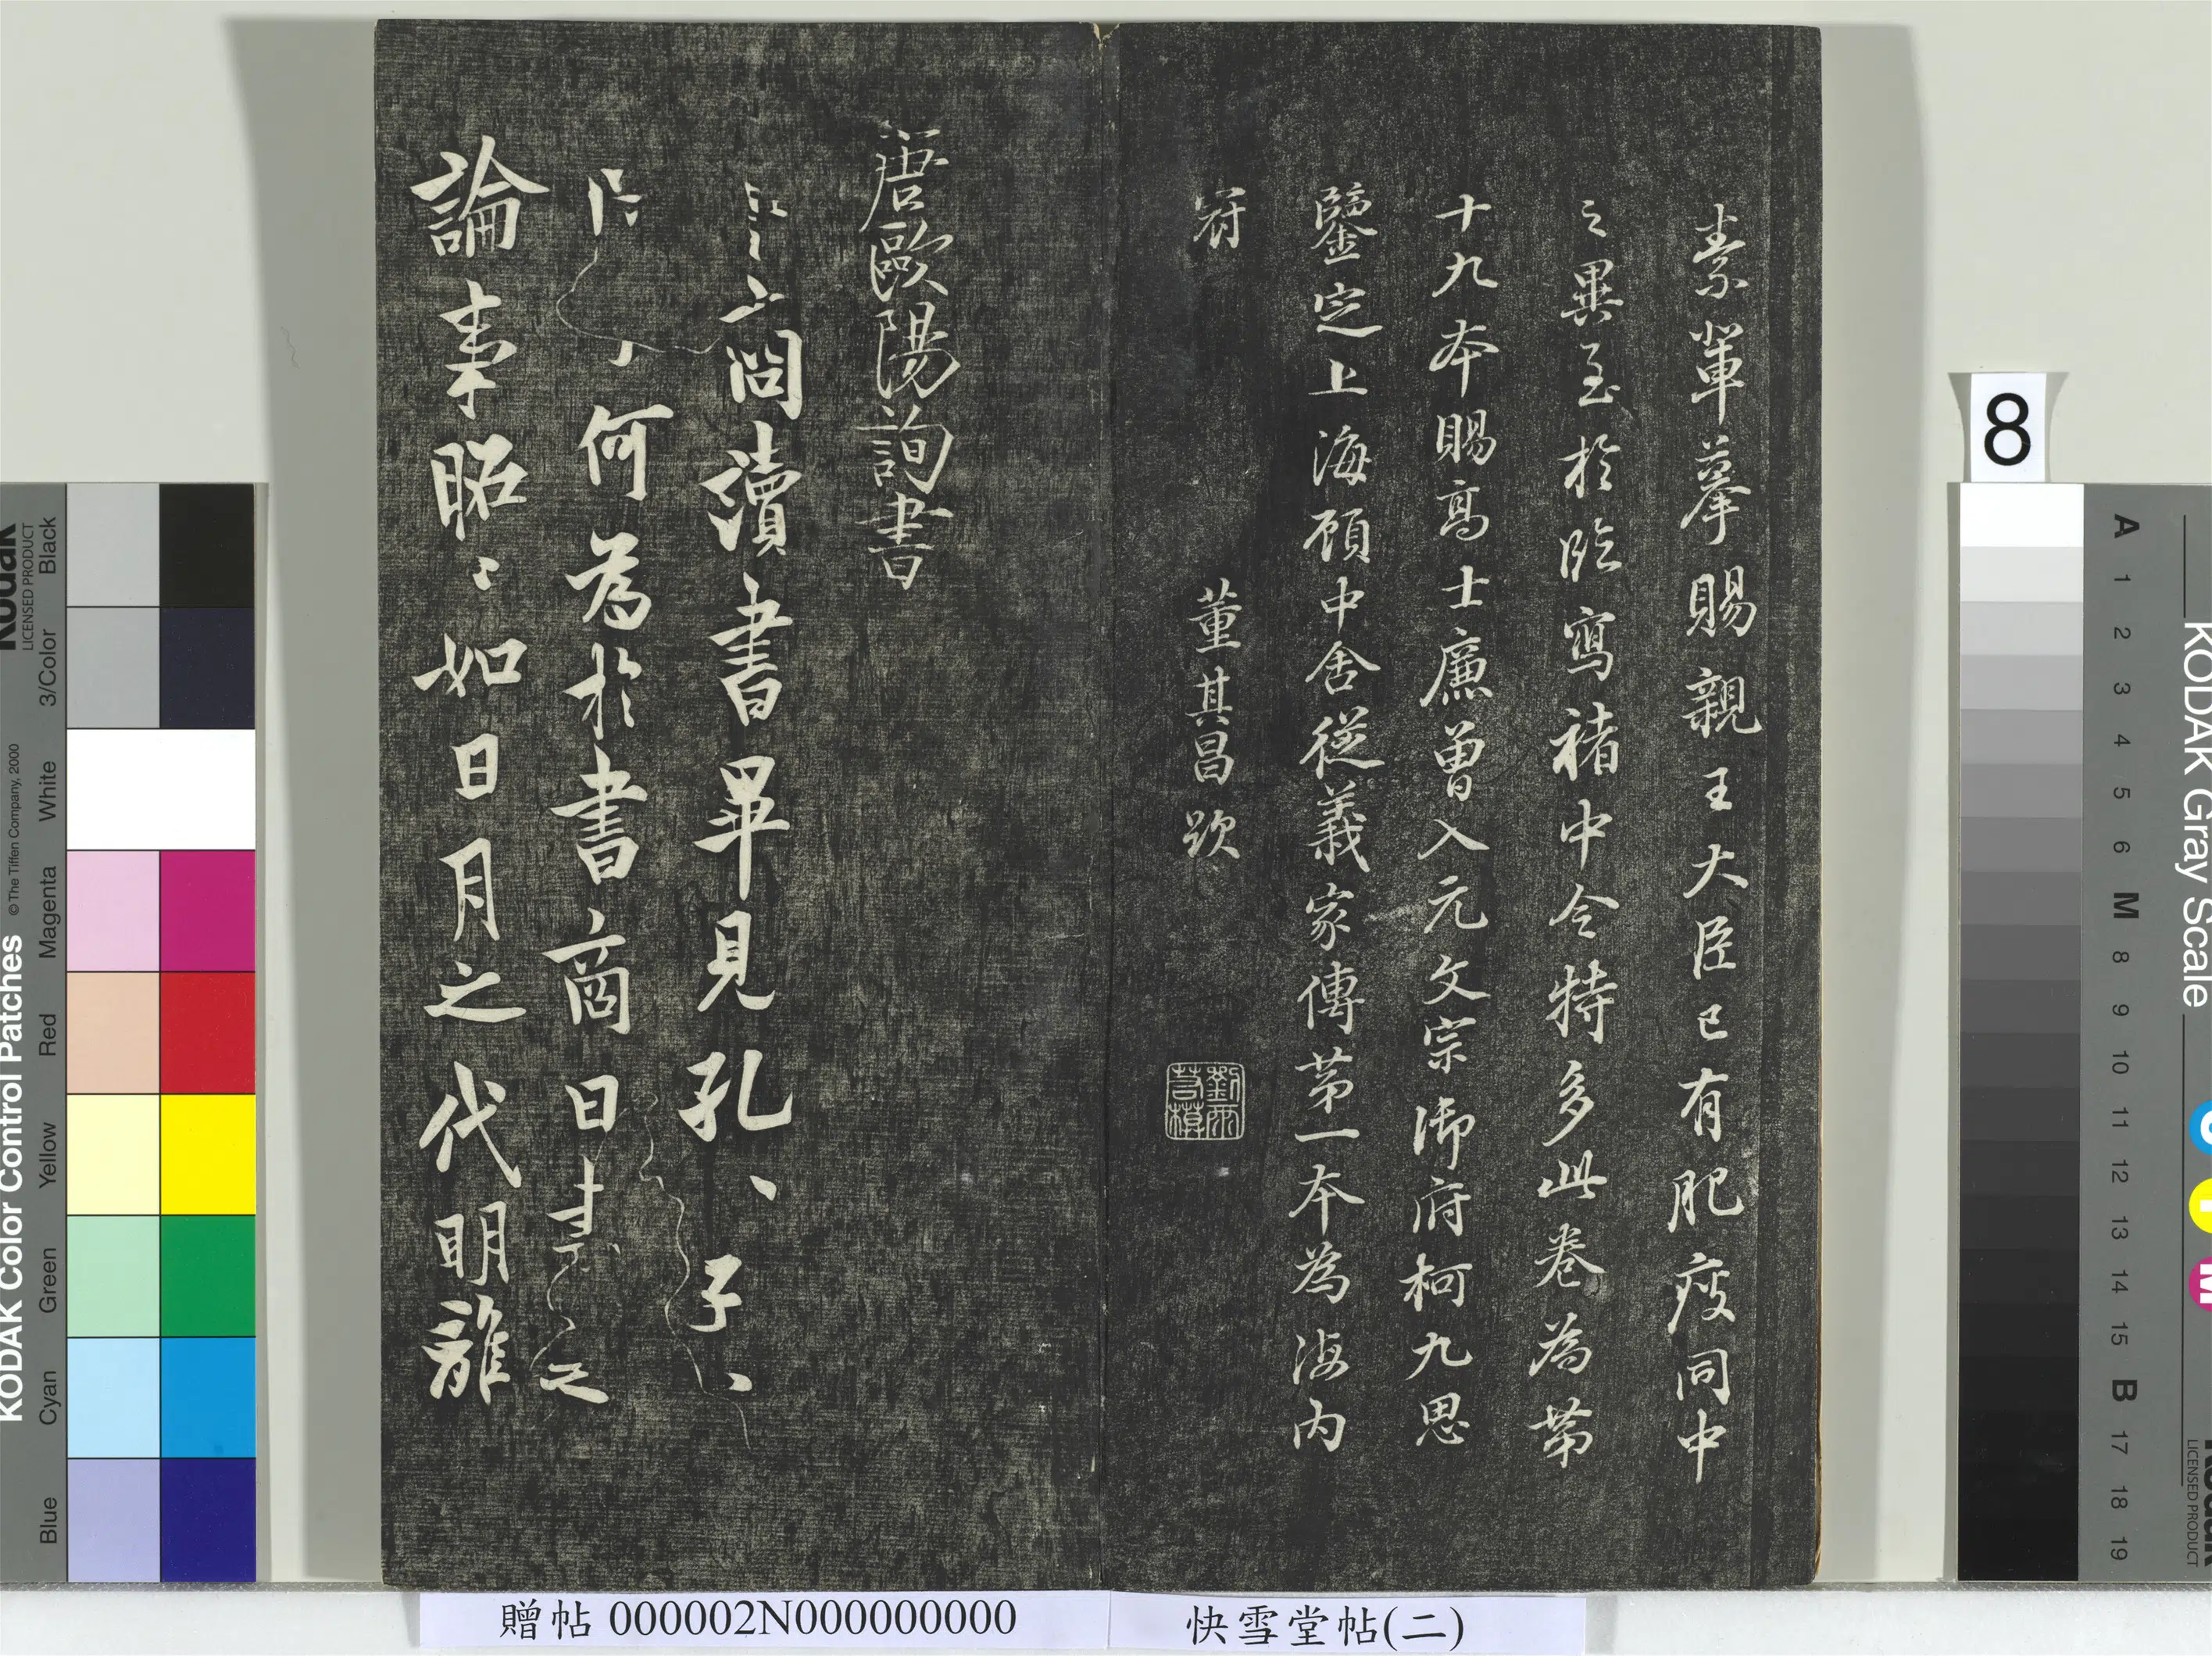 素軰摹賜親王大臣已有肥瘦同中
之異至於臨寫褚中令特多此卷為第
十九本賜高士廉曽入元文宗御府柯九思
鑒定上海顧中舍從義家傳第一本為海內
冠 董其昌跋
唐歐陽詢書
問讀書畢見孔、子、
何為於書商曰書之
論事昭〻如日月之代明離
8
贈帖 000002N000000000
快雪堂帖(二)
KODAK Color Control Patches
© The Tiffen Company, 2000
Kodak
LICENSED PRODUCT
Blue Cyan Green Yellow Red Magenta White 3/Color Black
KODAK Gray Scale
A 1 2 3 4 5 6 M 8 9 10 11 12 13 14 15 B 17 18 19
C Y M
Kodak
LICENSED PRODUCT